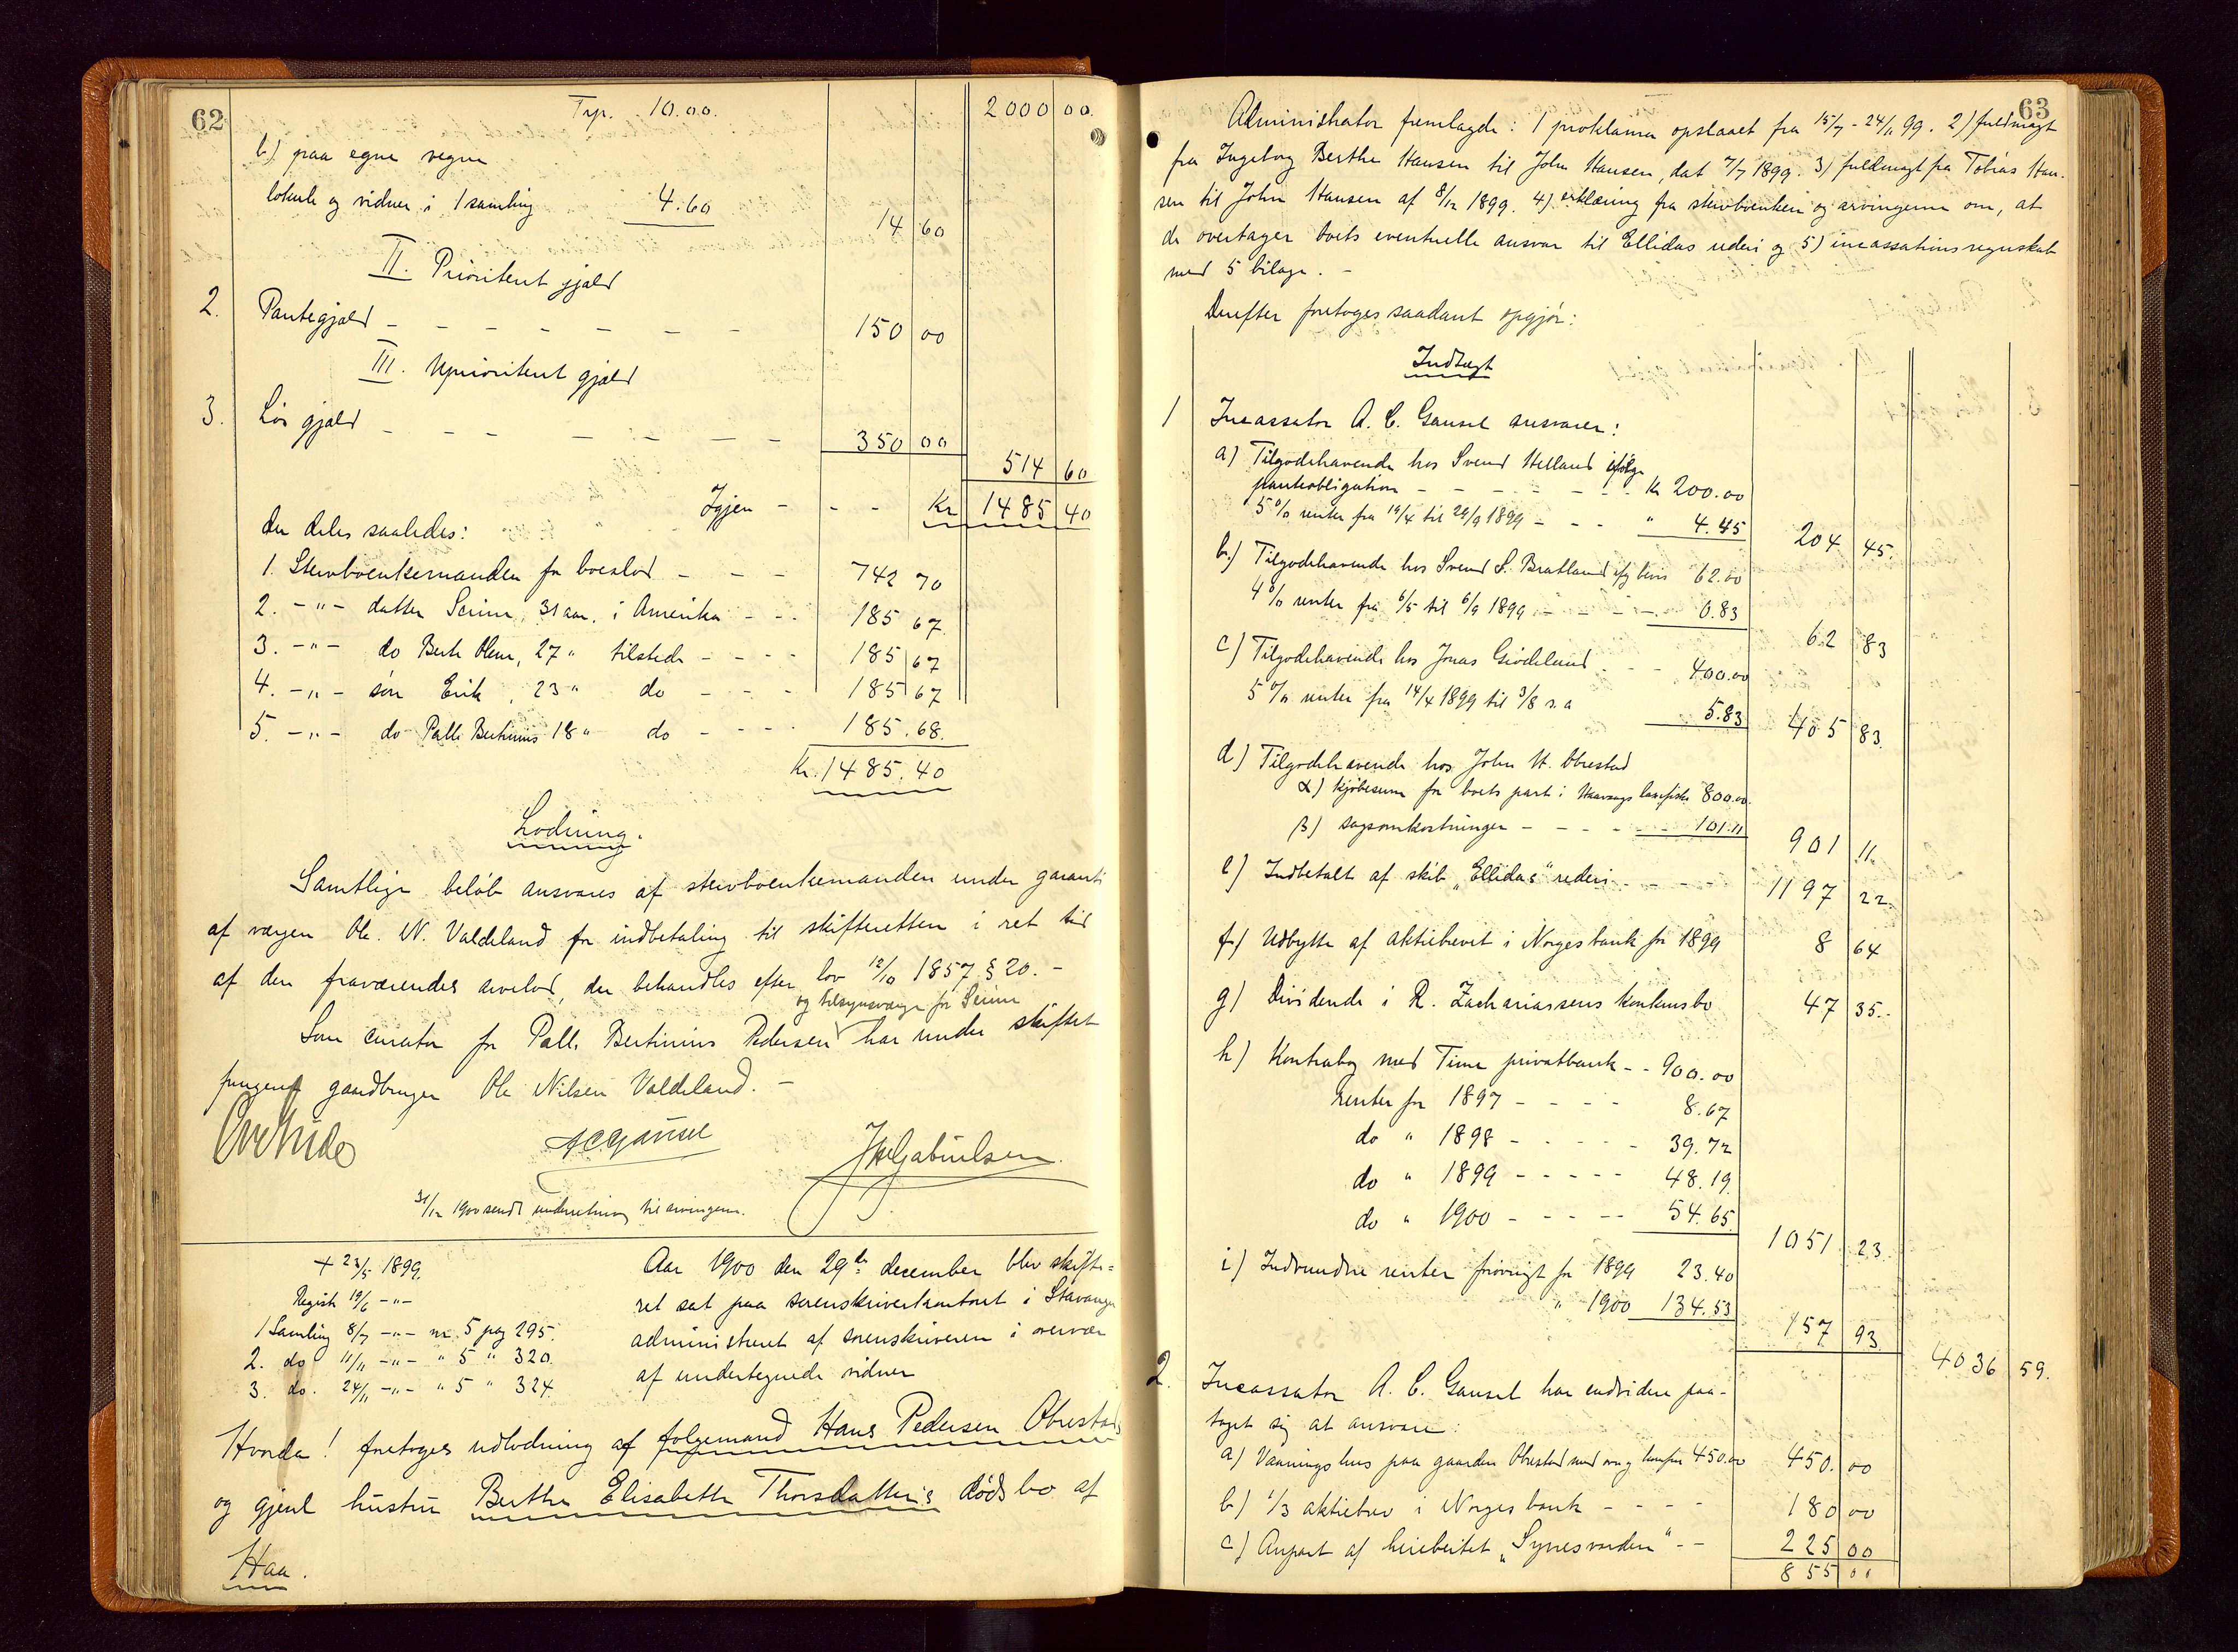 62
Trp. 10.00. 2000 00.
b) paa egne vegne
lokale og vidner i 1 samling 4.60 14 60
II. Prioritert gjæld
2. Pantegjæld - - - - - - - 150 00
III. Uprioritert gjæld
3. Løs gjæld - - - - - - - 350 00
514 60
Igjen - - - Kr 1485 40
der deles saaledes:
1. Stervboenkemanden for boeslod - - - 742 70
2. -"- datter Serine, 31 aar, i Amerika - - - 185 67
3. -"- do Berte Oline, 27 " tilstede - - - - 185 67
4. -"- søn Erik, 23 " do - - - 185 67
5. -"- do Palle Bertinius 18 " do - - - - 185.68.
Kr. 1485.40
Lodning.
Samtlige beløb ansvares af stervboenkemanden under garanti
af værgen Ole N. Valdeland for indbetaling til skifteretten i ret tid
af den fraværendes arvelod, der behandles efter lov 12/10 1857 § 20. -
og tilsynsværge for Serine
Som curator for Palle Bertinius Pedersen har under skiftet
fungeret gaardbruger Ole Nilsen Valdeland. -
A C Gausel
Gabrielsen
31/12 1900 sendt underretning til arvingerne.
+ 23/5 1899.
Registr 19/6 -"-
1 Samling 8/7 -"- nr. 5 pag 295.
2. do 11/11 -"- " 5 " 320.
3. do. 24/11 -"- " 5 " 324.
Aar 1900 den 29de december blev skifte=
ret sat paa sorenskriverkontoret i Stavanger
administreret af sorenskriveren i overvær
af undertegnede vidner
Hvorda! foretoges udlodning af følgemand Hans Pedersen Obrestads
og gjenl hustru Berthe Elisabeth Thorsdatters dødsbo af
Haa.
63
Administrator fremlagde: 1 proklama opslaaet fra 15/7 - 24/11 99. 2) fuldmagt
fra Ingeborg Berthe Hansen til John Hansen, dat 7/7 1899. 3) fuldmagt fra Tobias Han-
sen til John Hansen af 8/12 1899. 4) erklæring fra stervboenken og arvingerne om, at
de overtager boets eventuelle ansvar til Ellidas rederi og 5) incassationsregnskab
med 5 bilage. -
Derefter foretoges saadant opgjør:
Indtægt
1 Incassator A. C. Gausel ansvarer:
a) Tilgodehavende hos Svend Helland ifølge
panteobligation - - - - - - - Kr 200.00
5 % renter fra 19/4 til 29/9 1899 - - - " 4.45 204 45.
b.) Tilgodehavende hos Svend S. Bratland ifg bevis 62.00
4 % renter fra 6/5 til 6/9 1899 - - - - 0.83 62 83
c) Tilgodehavende hos Jonas Gjødeland - - - 400.00
5 % renter fra 14/4 1899 til 3/8 s.a 5.83 405 83.
d) Tilgodehavende hos John H. Obrestad
α) kjøbesum for boets part i Haavaags laxefiske 800.00.
β) sagsomkostninger - - - - - 101.11 901 11.
e) Indbetalt af skib "Ellidas" rederi - - - - - 1197 22.
f) Udbytte af aktiebrevet i Norges bank for 1899 8 64
g) Dividende i R. Zachariassens konkursbo 47 35.-
h) Kontrabog med Time privatbank - - 900.00
renter for 1897 - - - - 8.67
do " 1898 - - - - - 39.72
do " 1899 - - - - - 48.19.
do " 1900 - - - - - 54.65. 1051 23.
i) Indvundne renter forøvrigt for 1899 23.40
" 1900 134.53 157 93.
4036 59.
2. Incassator A. C. Gausel har endvidere paa-
taget sig at ansvare:
a) Vaaningshus paa gaarden Obrestad med ovn og komfur 450.00 450. 00
b) 1/3 aktiebrev i Norges bank - - - - 180 00
c) Anpart af heiebeitet "Synesvarden" - - 225 00
855 00